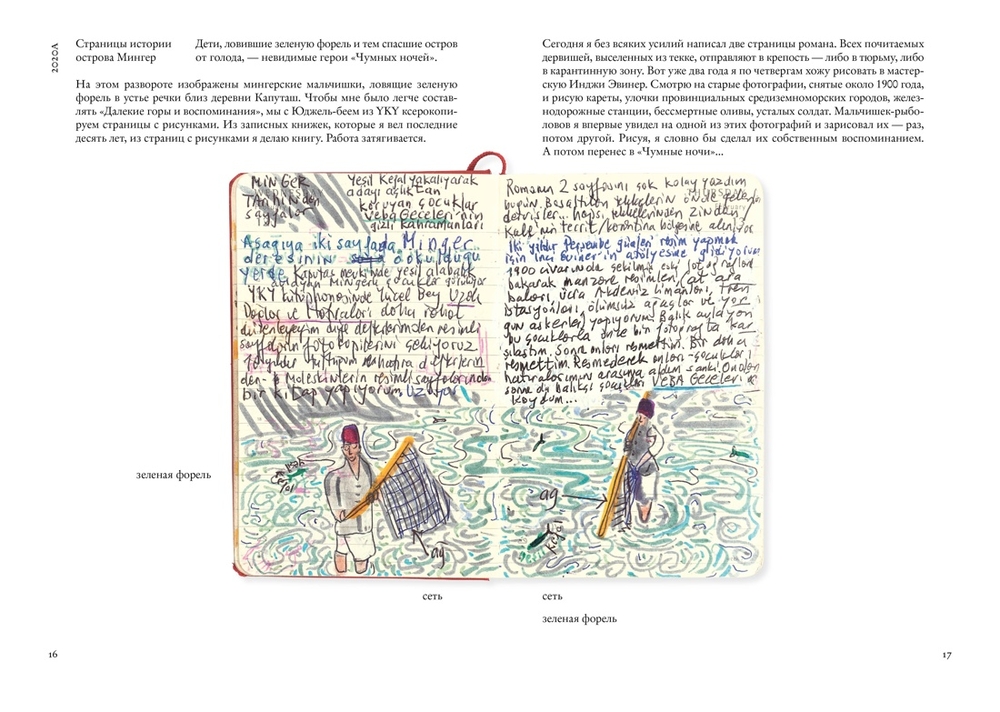 2020А
Страницы истории
острова Мингер
Дети, ловившие зеленую форель и тем спасшие остров
от голода, — невидимые герои «Чумных ночей».
На этом развороте изображены мингерские мальчишки, ловящие зеленую
форель в устье речки близ деревни Капуташ. Чтобы мне было легче состав-
лять «Далекие горы и воспоминания», мы с Юджель-беем из YKY ксерокопи-
руем страницы с рисунками. Из записных книжек, которые я вел последние
десять лет, из страниц с рисунками я делаю книгу. Работа затягивается.
Сегодня я без всяких усилий написал две страницы романа. Всех почитаемых
дервишей, выселенных из текке, отправляют в крепость — либо в тюрьму, либо
в карантинную зону. Вот уже два года я по четвергам хожу рисовать в мастер-
скую Инджи Эвинер. Смотрю на старые фотографии, снятые около 1900 года,
и рисую кареты, улочки провинциальных средиземноморских городов, желез-
нодорожные станции, бессмертные оливы, усталых солдат. Мальчишек-рыбо-
ловов я впервые увидел на одной из этих фотографий и зарисовал их — раз,
потом другой. Рисуя, я словно бы сделал их собственным воспоминанием.
А потом перенес в «Чумные ночи»...
MINGER
WEDNESDAY
Tarihinden
sayfalar
Yeşil Kefal yakalıyarak
adayı açlıktan
koruyan çocuklar
Veba Geceleri'nin
gizli kahramanları
Aşağıya iki sayfada Minger
deresinin döküldüğü
yerde Kaputaş mevkiinde yeşil alabalık
avlayan Mingerli çocuklar görülüyor
YKY kütüphanesinde Yücel Bey Uzak
Dağlar ve Hatıralar'ı daha rahat
düzenleyeyim diye defterlerimden resimli
sayfaların fotokopilerini çekiyoruz
tuttuğum defterlerin
den - Moleskinlerin resimli sayfalarından
bir kitap yapıyorum. Uzuyor
Romanın 2 sayfasını çok kolay yazdım
bugün. önde gelen
dervişler... hapis, zindan,
Kale'nin karantina bölgesine alınıyor
İki yıldır Perşembe günleri resim yapmak
için İnci Eviner'in atölyesine gidiyorum
1900 civarında çekilmiş eski fotoğraflara
bakarak manzara resimleri, at ara
baları, ücra Akdeniz limanları, tren
istasyonları, ölümsüz ağaçlar ve yor
gun askerler yapıyorum. Balık avlayan
bu çocuklarla önce bir fotoğrafta kar
şılaştım, sonra onları resmettim. Bir daha
resmettim. Resmederek onları - çocukları
hatıralarımın arasına aldım sanki. Onları
sonra da balıkçı çocukları VEBA GECELERİ'ne
koydum...
зеленая форель
yeşil
kefal
ağ
ağ
kefal
сеть
сеть
зеленая форель
16
17